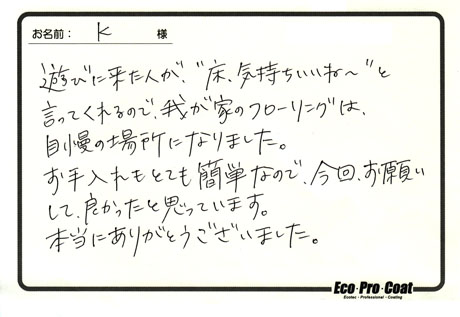 お名前： K 様
遊びに来た人が、“床、気持ちいいね～”と
言ってくれるので、我が家のフローリングは、
自慢の場所になりました。
お手入れもとても簡単なので、今回、お願い
して、良かったと思っています。
本当にありがとうございました。
Eco・Pro・Coat
Ecotec・Professional・Coating